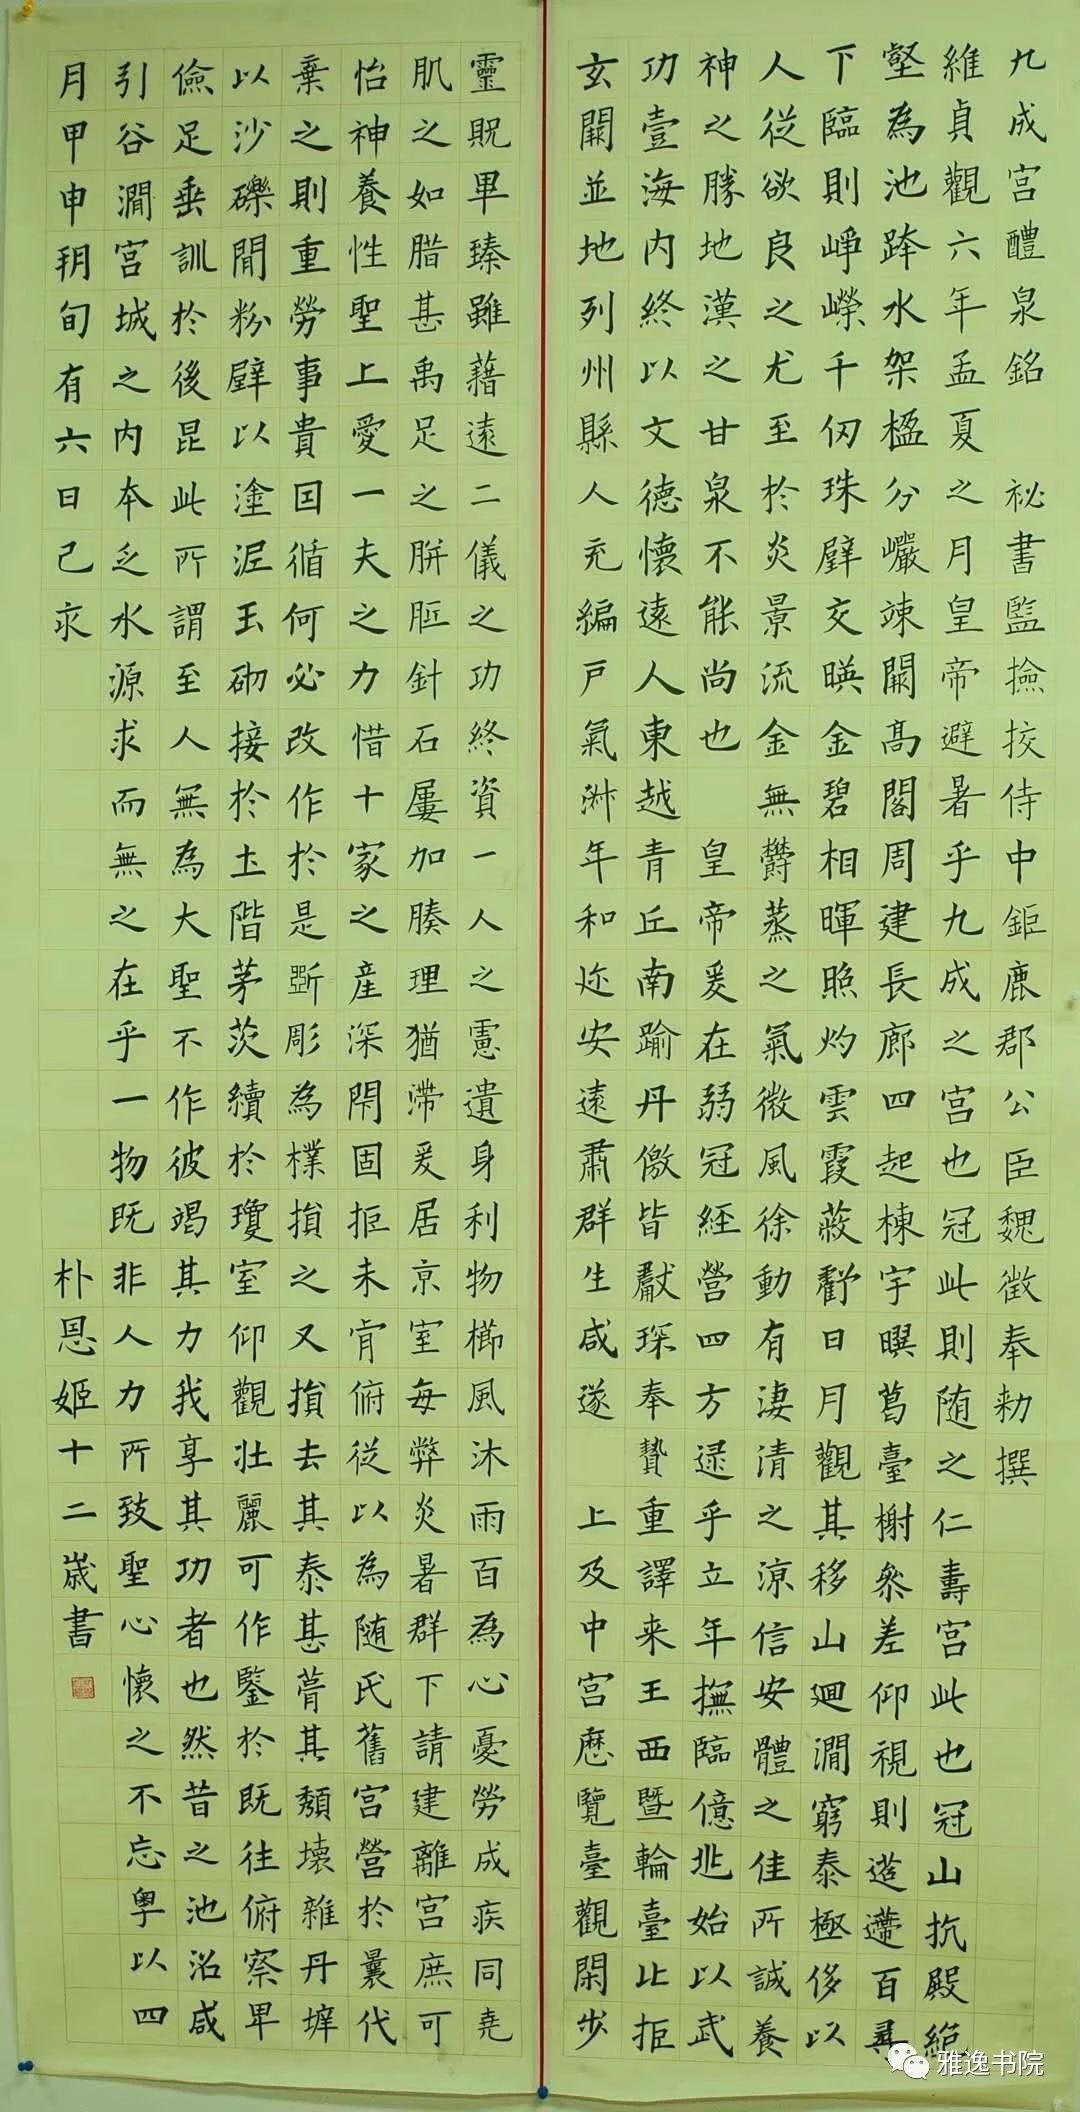 九成宮醴泉銘 祕書監撿挍侍中鉅鹿郡公臣魏徵奉勅撰
維貞觀六年孟夏之月皇帝避暑乎九成之宮也冠此則随之仁壽宮此也冠山抗殿絕
壑為池跨水架楹分巖竦闕高閣周建長廊四起棟宇葛臺榭參差仰視則迢遰百尋
下臨則崢嶸千仞珠壁交暎金碧相暉照灼雲霞蔽虧日月觀其移山迴澗窮泰極侈以
人從欲良之尤至於炎景流金無欝蒸之氣微風徐動有淒清之涼信安體之佳所誠養
神之勝地漢之甘泉不能尚也 皇帝爰在弱冠經營四方逯乎立年撫臨億兆始以武
功壹海内終以文德懷遠人東越青丘南踰丹儌皆獻琛奉贄重譯来王西暨輪臺北拒
玄闕並地列州縣人充編戶氣淑年和迩安遠肅群生咸遂 上及中宮歷覽臺觀閑步
靈貺畢臻雖藉遠二儀之功終資一人之慮遺身利物櫛風沐雨百為心憂勞成疾同堯
肌之如腊甚禹足之胼胝針石屢加腠理猶滯爰居京室每弊炎暑群下請建離宮庶可
怡神養性聖上愛一夫之力惜十家之産深閑固拒未肯俯從以為随氏舊宮營於曩代
棄之則重勞事貴因循何必改作於是斲彫為樸損之又損去其泰甚葺其頹壞雜丹墀
以沙礫間粉壁以塗泥玉砌接於土階茅茨續於瓊室仰觀壯麗可作鑒於既往俯察卑
儉足垂訓於後昆此所謂至人無為大聖不作彼竭其力我享其功者也然昔之池沼咸
引谷澗宮城之内本乏水源求而無之在乎一物既非人力所致聖心懷之不忘粤以四
月甲申朔旬有六日己亥
朴恩姬十二歲書
雅逸书院